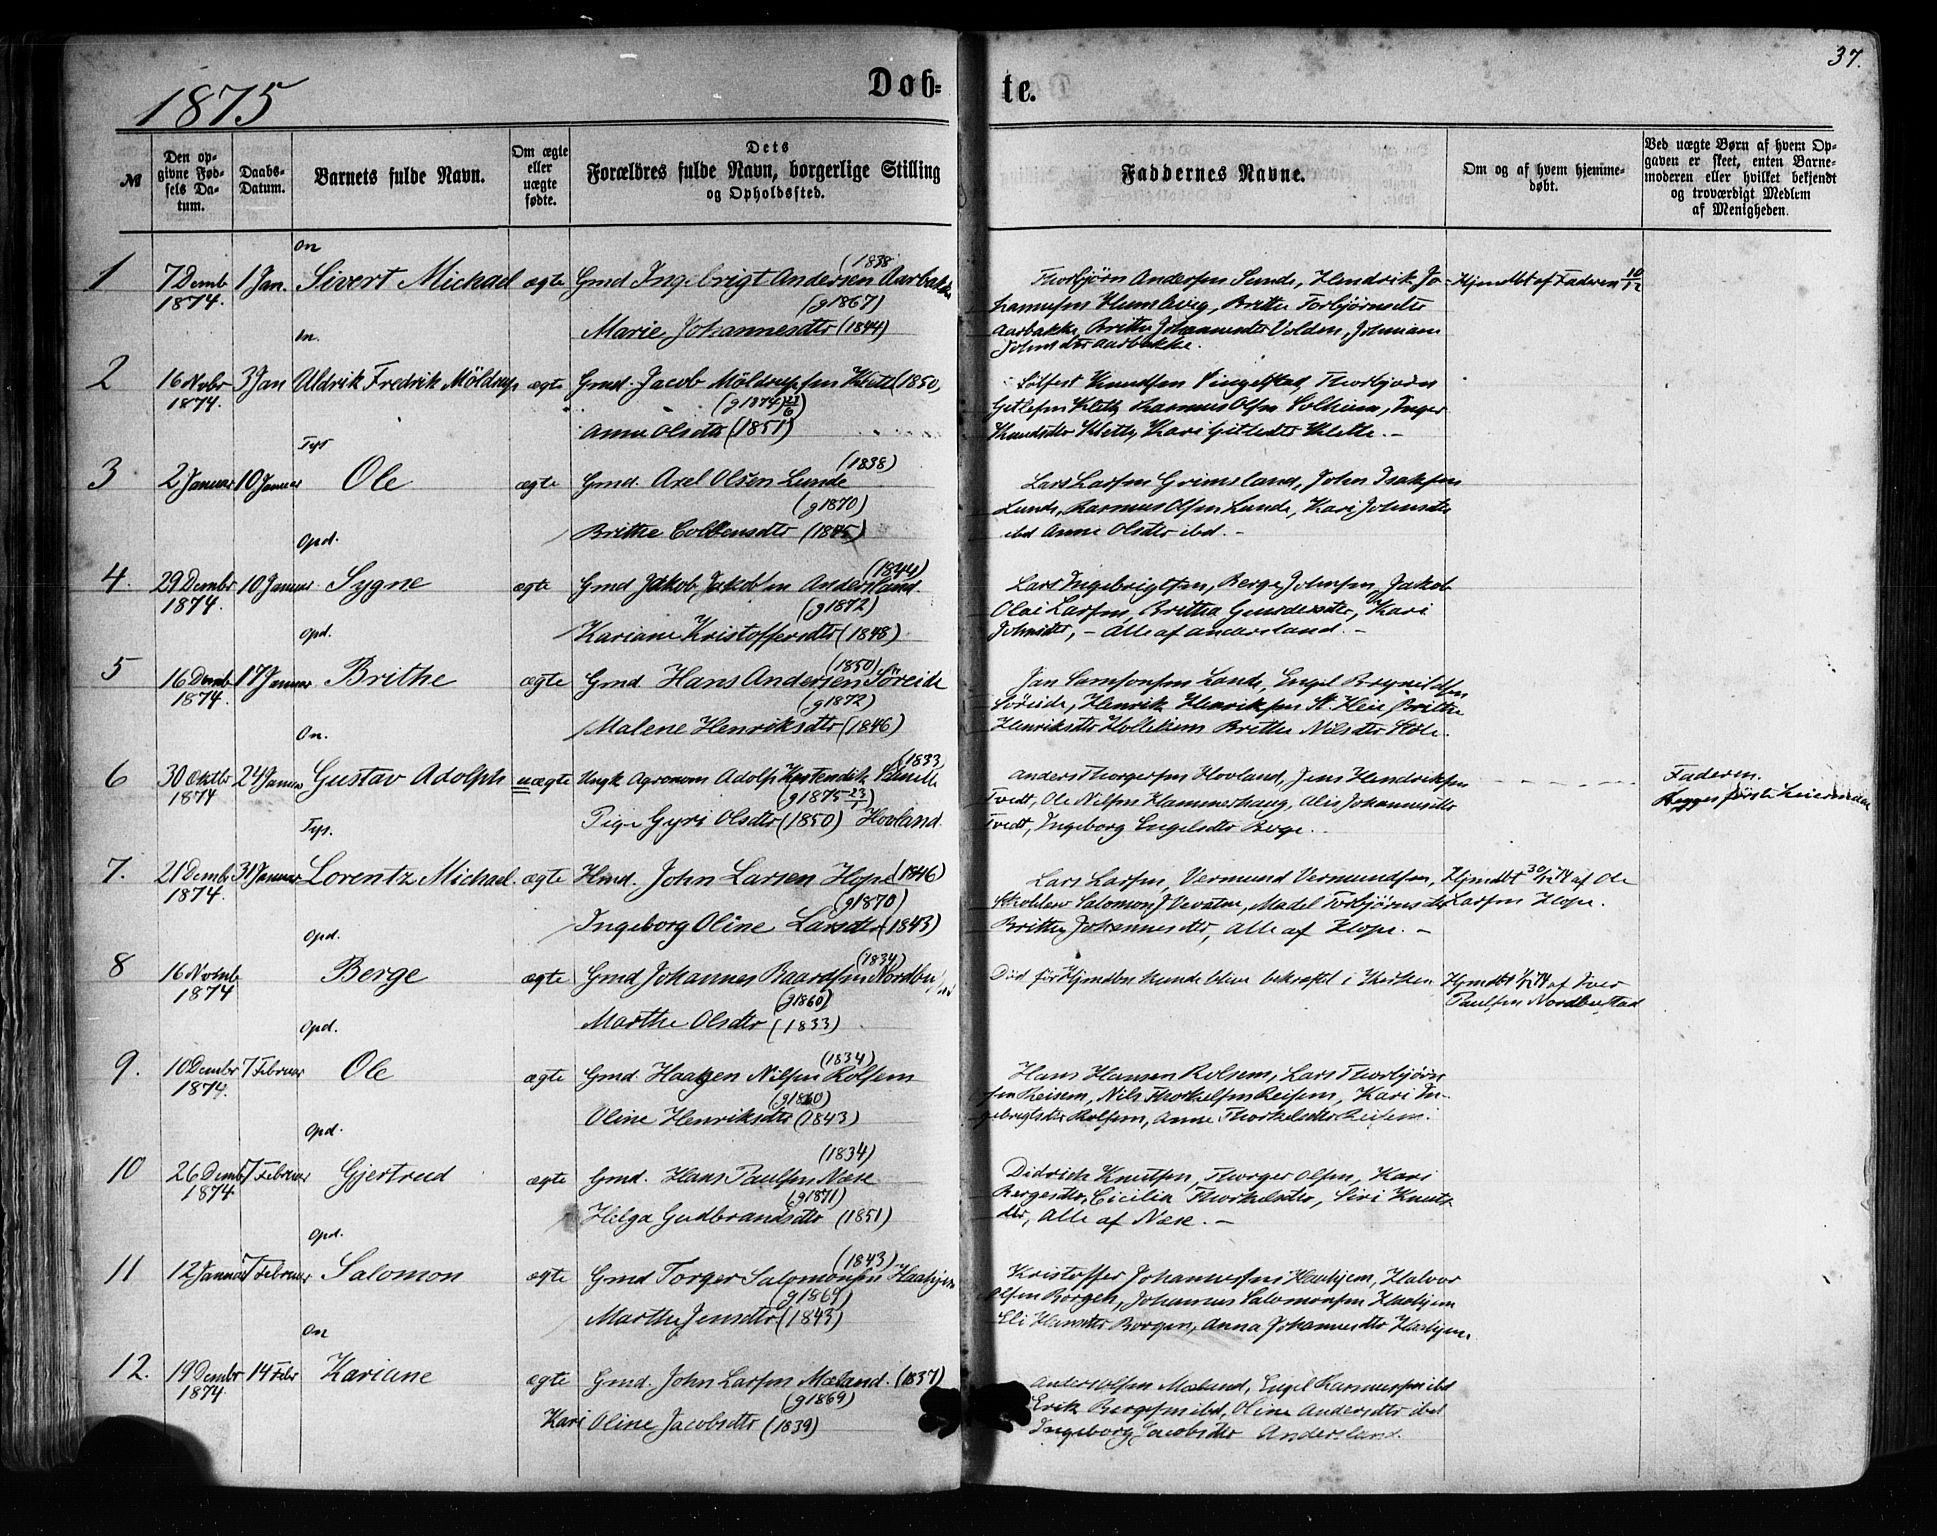 37.
1875
Døb-
te.
№
Den op-
givne Fød-
sels Da-
tum.
Daabs-
Datum.
Barnets fulde Navn.
Om ægte
eller
uægte
fødte.
Dets
Forældres fulde Navn, borgerlige Stilling
og Opholdssted.
Faddernes Navne.
Om og af hvem hjemme-
døbt.
Ved uægte Børn af hvem Op-
gaven er skeet, enten Barne-
moderen eller hvilket bekjendt
og troværdigt Medlem
af Menigheden.
On
1 7 Demb 1874 1 Jan. Sivert Michael ægte Gmd Ingebrigt Andersen Aarbakke (1838
(g1867)
Marie Johannesdtr (1844)
Thorbjørn Andersen Sunde, Hendrik Jo-
hannesen Humlevig, Brithe Torbjørnsdtr
Aarbakke, Brithe Johannesdtr Volden, Johanne
Johnsdtr Aarbakke.
Hjemdbt af Faderen 10/12
On.
2 16 Nvbr 1874. 3 Jan Uldrik Fredrik Möldrup ægte Gmd. Jacob Möldrupsen Klette (1850)
(g1874) 23/6
Anna Olsdtr (1851)
Sølfest Knudsen Vingelstad, Thorbjørn
Gitlesen Klette, Rasmus Olsen Solheim, Inger
Knudsdtr Klette, Kari Gitlesdtr Klette. –
Tys
3 2 Januar 10 Januar Ole ægte Gmd. Axel Olsen Lunde (1838)
(g1870)
Brithe Colbensdtr (1845)
Lars Larsen Grimsland, John Isaksen
Lunde, Rasmus Olsen Lunde, Kari Johnsdtr
ibd Anne Olsdtr ibd. –
Opd.
4. 29 Dembr 1874. 10 Januar Sygne ægte Gmd Jakob Jakobsen Andersland. (1844)
(g1872)
Kariane Kristoffersdtr (1848)
Lars Ingebrigtsen, Berge Johnsen, Jakob
Olai Larsen, Britha Gundersdtr, Kari
Johnsdtr, – Alle af Andersland. –
Opd.
5 16 Demb 1874. 17 Januar Brithe ægte Gmd Hans Andersen Söreide (1850)
(g1872)
Malene Henriksdtr (1846)
Jan Samsonsen Lande, Engel Brynildsen
Söreide, Henrik Henriksen St. Heie, Brithe
Henriksdtr Hollekim Brithe Nilsdtr Støle.
On.
6 30 Oktbr 1874 24 Januar Gustav Adolph uægte Ungk Agronom Adolph (1833
(g1875 23/1)
Pige Gyri Olsdtr (1850) Hovland.
Anders Thorgersen Hovland, Jens Hendriksen
Tvedt, Ole Nilsen Hammerhaug, Alis Johannesdtr
Tvedt, Ingeborg Engelsdtr Berge.
Faderen.
Begges første Leiermaal
Tys.
7. 21 Demb 1874. 31 Januar Lorentz Michael. ægte Hmd. John Larsen Hope (1846)
(g1870)
Ingeborg Oline Larsdtr (1843)
Lars Larsen, Vermund Vermundsen,
Salomon J Vevatne, Madel Torbjørnsdtr
Brithe Johannesdtr, Alle af Hope. –
Hjmdbt 30/12 74 af Ole
Larsen Hope.
Opd.
8 16 Novmb 1874 Berge ægte Gmd Johannes Baardsen Nordbustad (1834)
(g1860)
Marthe Olsdtr (1833)
Død før Hjmdbn kunde blive bekræftet i Kirken
Hjmdbt af Iver
Paulsen Nordbustad
Opd.
9. 10 Dembr 1874. 7 Februar Ole ægte Gmd. Haagen Nilsen Rolsem (1834)
(g1860)
Oline Henriksdtr (1843)
Hans Hansen Rolsem, Lars Thorbjørn-
sen Reisem, Nils Thorkelsen Reisem, Kari In-
gebrigtsdtr Rolsem, Anne Thorkelsdtr Reisem.
Opd.
10 26 Demb 1874. 7 Februar Gjertrud ægte Gmd. Hans Paulsen Næse (1834)
(g1871)
Helga Gudbrandsdtr (1851)
Didrich Knutsen, Thorger Olsen, Kari
Bergesdtr, Cicilia Thorkelsdtr, Siri Knuts-
dtr, Alle af Næse. –
Opd.
11 12 Januar 7 Februar Salomon ægte Gmd Torger Salomonsen Haahjem (1843)
(g1869)
Marthe Jensdtr (1843)
Kristoffer Johannessen Haahjem, Halvor
Olsen Borgen, Johannes Salomonsen Haahjem
Eli Hansdtr Borgen, Anna Johannesdtr Haahjem.
On
12. 19 Dembr 1874. 14 Febr Kariane ægte Gmd. John Larsen Mæland. (1837)
(g1869)
Kari Oline Jacobsdtr (1839)
Anders Olsen Mæland, Engel Rasmussen ibd
Erik Bergesen ibd, Oline Andersdtr ibd
Ingeborg Jacobsdtr Andersland.